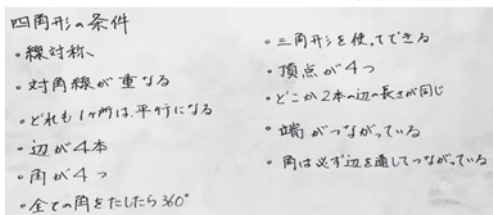 四角形の条件
・線対称、
・対角線が重なる
・どれも1ヶ所は、平行になる
・辺が4本
・角が4つ
・全ての角をたしたら360°
・三角形を使ってできる
・頂点が4つ
・どこか2本の辺の長さが同じ
・端がつながっている
・角は必ず辺を通してつながっている